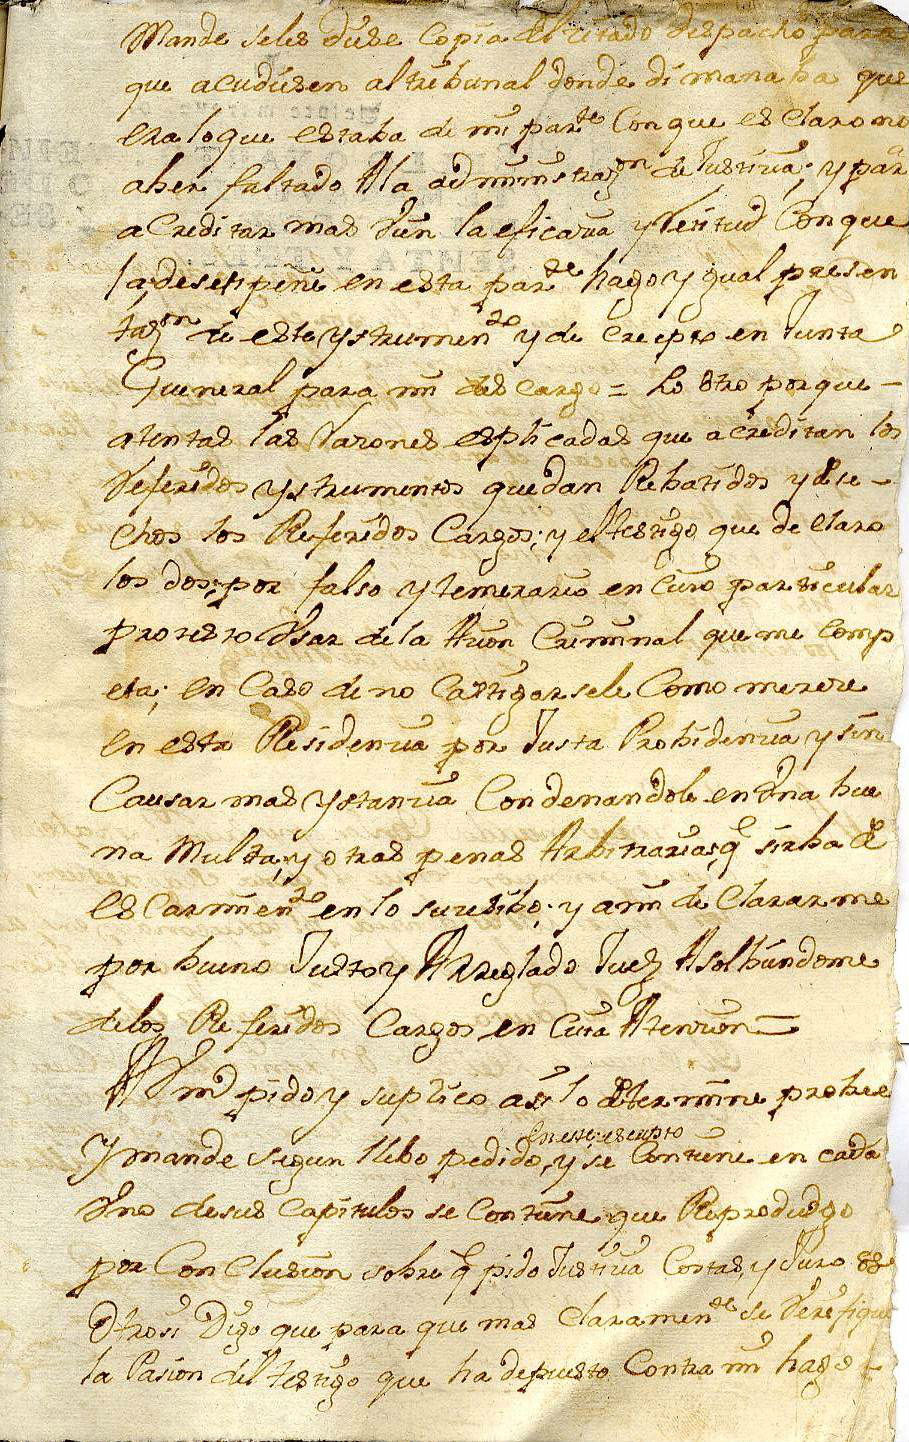 Mande seles diese Copia del citado despacho para
que acudiesen altribunal donde dimanaba que
era loque estaba de mi parte Con que es claro no
aber faltado Ala administrazon de Justicia; y para
aCreditar mas vien la eficacia y Retitud Conque
la desenpeñe en esta parte hago y gual presen
tazon de este ystrumento y de Creepto en Junta
Gueneral para mi des cargo = Lo otro porque —
atentas las Razones esplicadas que acreditan los
Referidos ystrumentos quedan Rebatidos y dese —
chos los Referidos Cargos; y eltestigo que de claro
los dos; por falso y temerario en Cuio particular
protesto Vsar de la Acion Criminal que me Comp
eta; en Caso de no Castigarsele Como merece
en esta Residencia por Justa Probidencia y sin
Causar mas ystancia Condenandole en vna bue
na Multa, y otras penas Arbitrarias q sirba de
esCarmiento en lo sucesibo; y a mi de Clararme
por bueno Justo y Arreglado Juez Asolbiendome
delos Referidos Cargos en Cuia Atencion —
A Vmd pido y suplico asi lo determine probee
en este escripto
Y mande segun llebo pedido, y se Contiene en cada
Vno desus Capitulos se Contiene que Reprodusgo
por Conclusion sobre q pido Justicia Costas, y Juro &
Otrosi Digo que para que mas Claramente se Verefique
la Pasion del testigo que ha depuesto Contra mi hago —